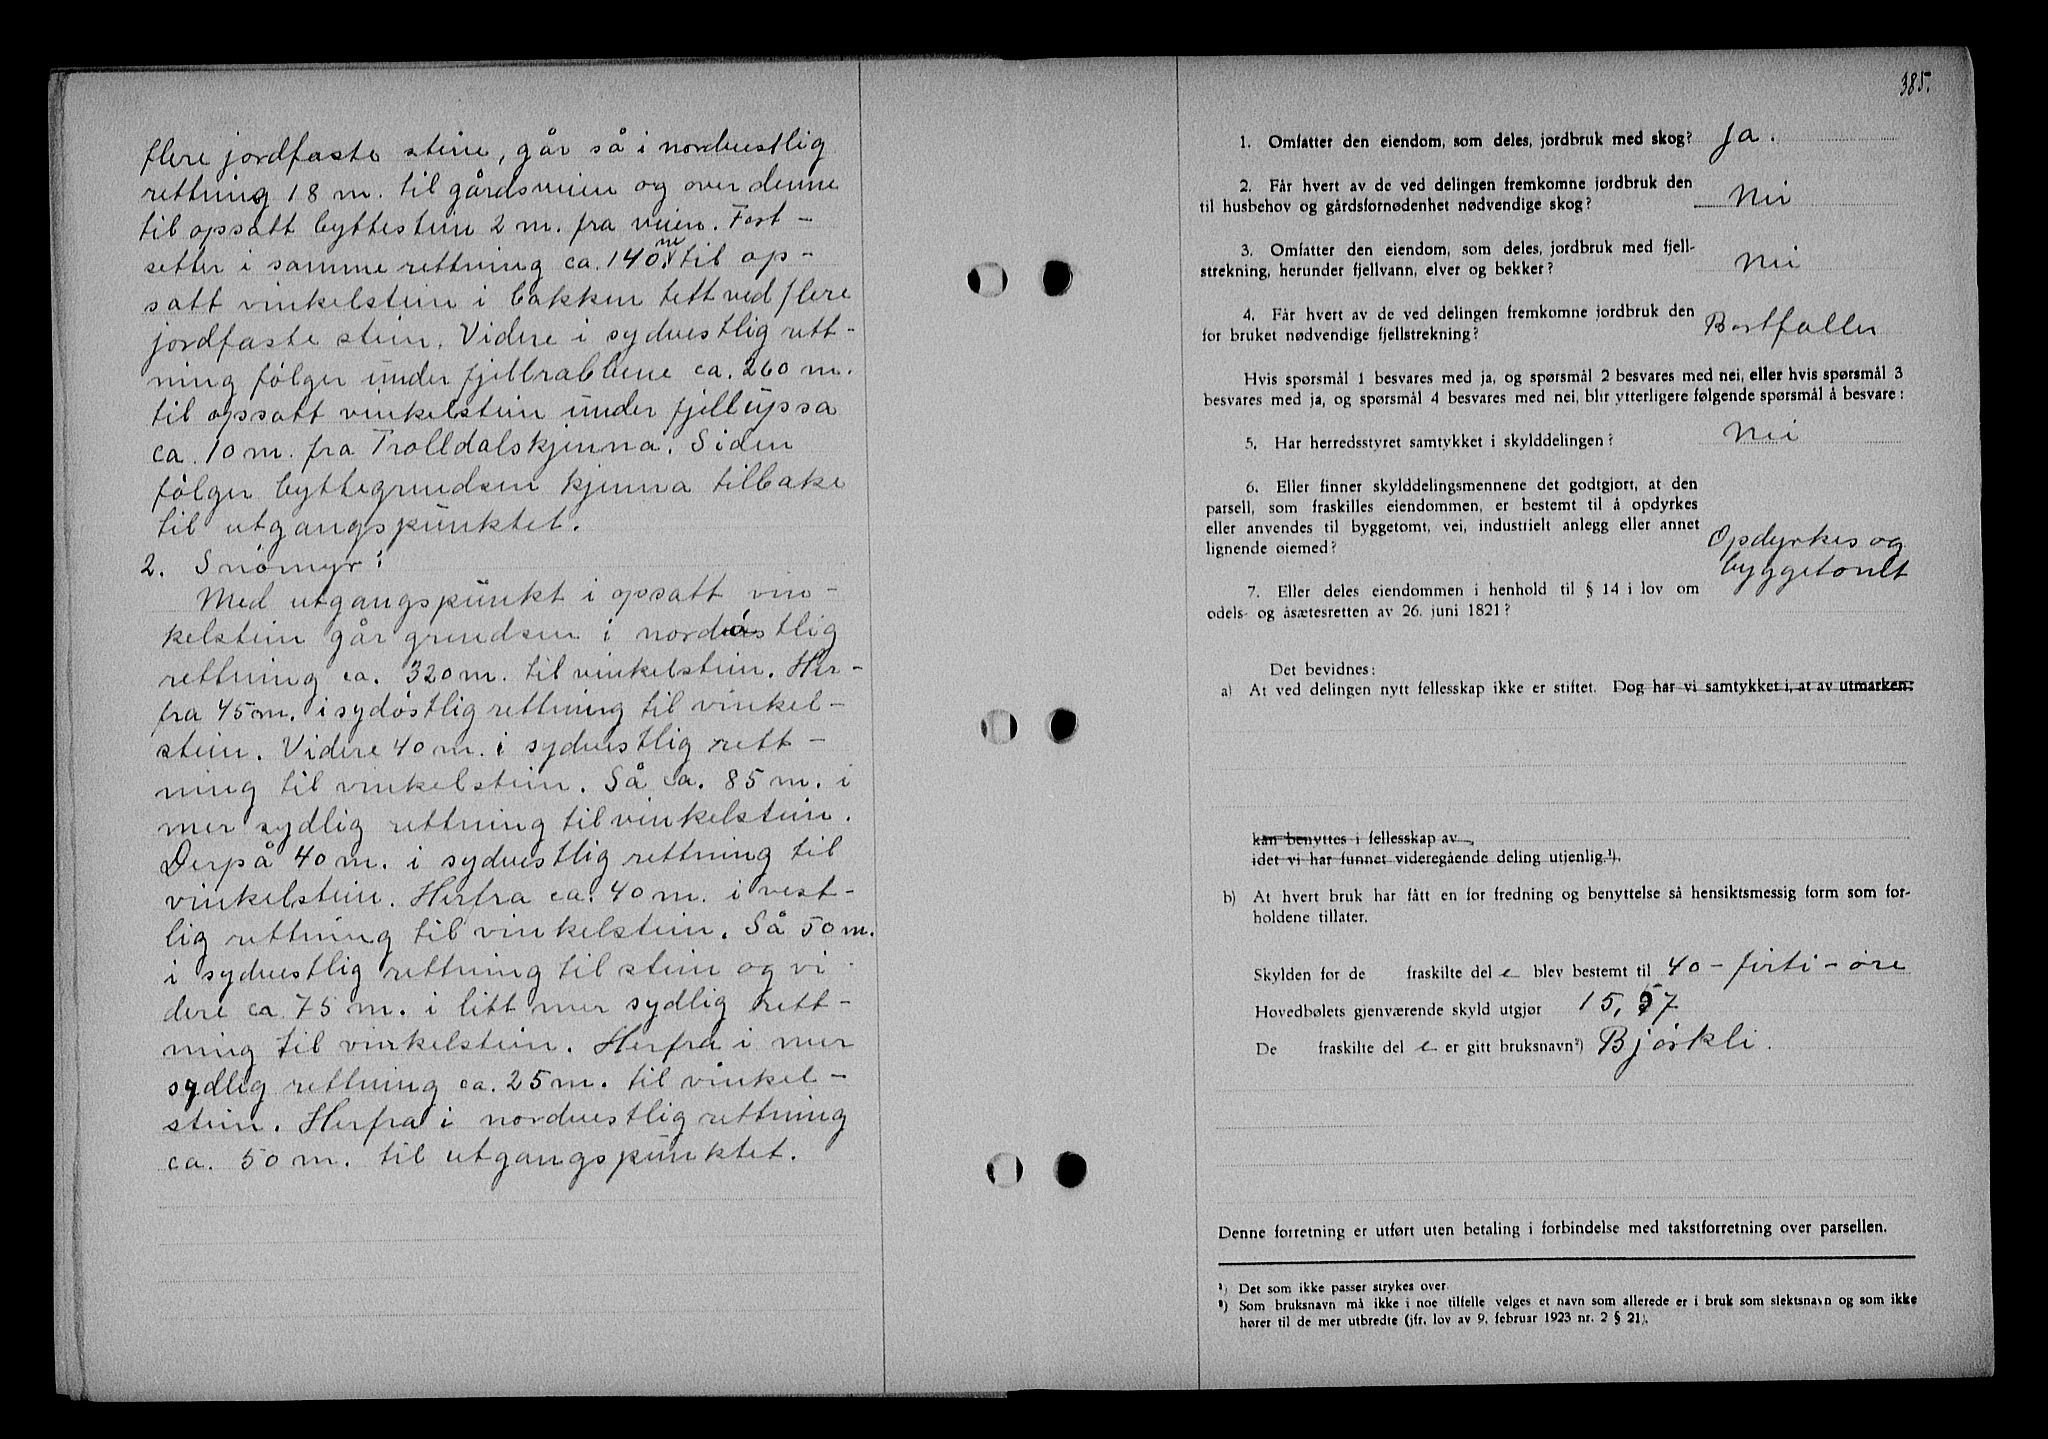 flere jordfaste steine, går så i nordvestlig
rettning 18 m. til gårdsveien og over denne
til opsatt byttestein 2 m. fra veien. Fort-
setter i samme rettning ca. 140 m til op-
satt vinkelstein i bakken tett ved flere
jordfaste stein. Videre i sydvestlig rett-
ning følger under fjellrabbene ca. 260 m.
til opsatt vinkelstein under fjellupsa
ca. 10 m. fra Trolldalskjenna. Siden
følger byttegrendsen kjenna tilbake
til utgangspunktet.
2. Snømyr:
Med utgangspunkt i opsatt vin-
kelstein går grendsen i nordøstlig
rettning ca. 320 m. til vinkelstein. Her-
fra 45 m. i sydøstlig rettning til vinkel-
stein. Videre 40 m. i sydvestlig rett-
ning til vinkelstein. Så ca. 85 m. i
mer sydlig rettning til vinkelstein.
Derpå 40 m. i sydvestlig rettning til
vinkelstein. Herfra ca. 40 m. i vest-
lig rettning til vinkelstein. Så 50 m.
i sydvestlig rettning til stein og vi
dere ca 75 m. i litt mer sydlig rett-
ning til vinkelstein. Herfra i mer
sydlig rettning ca. 25 m. til vinkel-
stein. Herfra i nordvestlig rettning
ca. 50 m. til utgangspunktet.
385.
1. Omfatter den eiendom, som deles, jordbruk med skog? Ja.
2. Får hvert av de ved delingen fremkomne jordbruk den
til husbehov og gårdsfornødenhet nødvendige skog? Nei
3. Omfatter den eiendom, som deles, jordbruk med fjell-
strekning, herunder fjellvann, elver og bekker? Nei
4. Får hvert av de ved delingen fremkomne jordbruk den
for bruket nødvendige fjellstrekning? Bortfaller
Hvis spørsmål 1 besvares med ja, og spørsmål 2 besvares med nei, eller hvis spørsmål 3
besvares med ja, og spørsmål 4 besvares med nei, blir ytterligere følgende spørsmål å besvare:
5. Har herredsstyret samtykket i skylddelingen? Nei
6. Eller finner skylddelingsmennene det godtgjort, at den
parsell, som fraskilles eiendommen, er bestemt til å opdyrkes
eller anvendes til byggetomt, vei, industrielt anlegg eller annet
lignende øiemed? Opdyrkes og
byggetomt
7. Eller deles eiendommen i henhold til § 14 i lov om
odels- og åsætesretten av 26. juni 1821?
Det bevidnes:
a) At ved delingen nytt fellesskap ikke er stiftet. Dog har vi samtykket i, at av utmarken:
kan benyttes i fellesskap av
idet vi har funnet videregående deling utjenlig.¹).
b) At hvert bruk har fått en for fredning og benyttelse så hensiktsmessig form som for-
holdene tillater.
Skylden for de fraskilte del e blev bestemt til 40 - firti - øre
Hovedbølets gjenværende skyld utgjør 15,57
De fraskilte del e er gitt bruksnavn²) Bjørkli.
Denne forretning er utført uten betaling i forbindelse med takstforretning over parsellen.
¹) Det som ikke passer strykes over.
²) Som bruksnavn må ikke i noe tilfelle velges et navn som allerede er i bruk som slektsnavn og som ikke
hører til de mer utbredte (jfr. lov av 9. februar 1923 nr. 2 § 21).